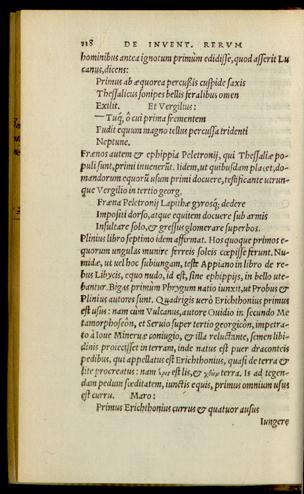 118 DE INVENT. RERVM
hominibus antea ignotum primùm edidisse, quod asserit Lu
canus, dicens:
Primus ab æquorea percussis cuspide saxis
Thessalicus sonipes bellis feralibus omen
Exilit. Et Vergilius:
—Tuq́, ô cui prima frementem
Fudit equum magno tellus percussa tridenti
Neptune.
Frænos autem & ephippia Peletronij, qui Thessaliæ po-
puli sunt, primi inuenerũt. Iidem, ut quibusdam placet, do-
mandorum equorũ usum primi docuere, testificante utrun-
que Vergilio in tertio georg.
Fræna Peletronij Lapithæ gyrosq́; dedere
Impositi dorso, atque equitem docuere sub armis
Insultare solo, & gressus glomerare superbos.
Plinius libro septimo idem affirmat. Hos quoque primos e-
quorum ungulas munire ferreis soleis cœpisse ferunt. Nu-
midæ, ut uel hoc subiungam, teste Appiano in libro de re-
bus Libycis, equo nudo, id est, sine ephippijs, in bello ute-
bantur. Bigas primum Phrygum natio iunxit, ut Probus &
Plinius autores sunt. Quadrigis uerò Erichthonius primus
est usus: nam cùm Vulcanus, autore Ouidio in secundo Me
tamorphoseôn, et Seruio super tertio georgicôn, impetra-
to à Ioue Mineruæ coniugio, & illa reluctante, semen libi-
dinis proiecisset in terram, inde natus est puer draconteis
pedibus, qui appellatus est Erichthonius, quasi de terra &
lite procreatus: nam ἔρις est lis, & χθὼν terra. Is ad tegen-
dam pedum fœditatem, iunctis equis, primus omnium usus
est curru. Maro:
Primus Erichthonius currus & quatuor ausus
Iungere